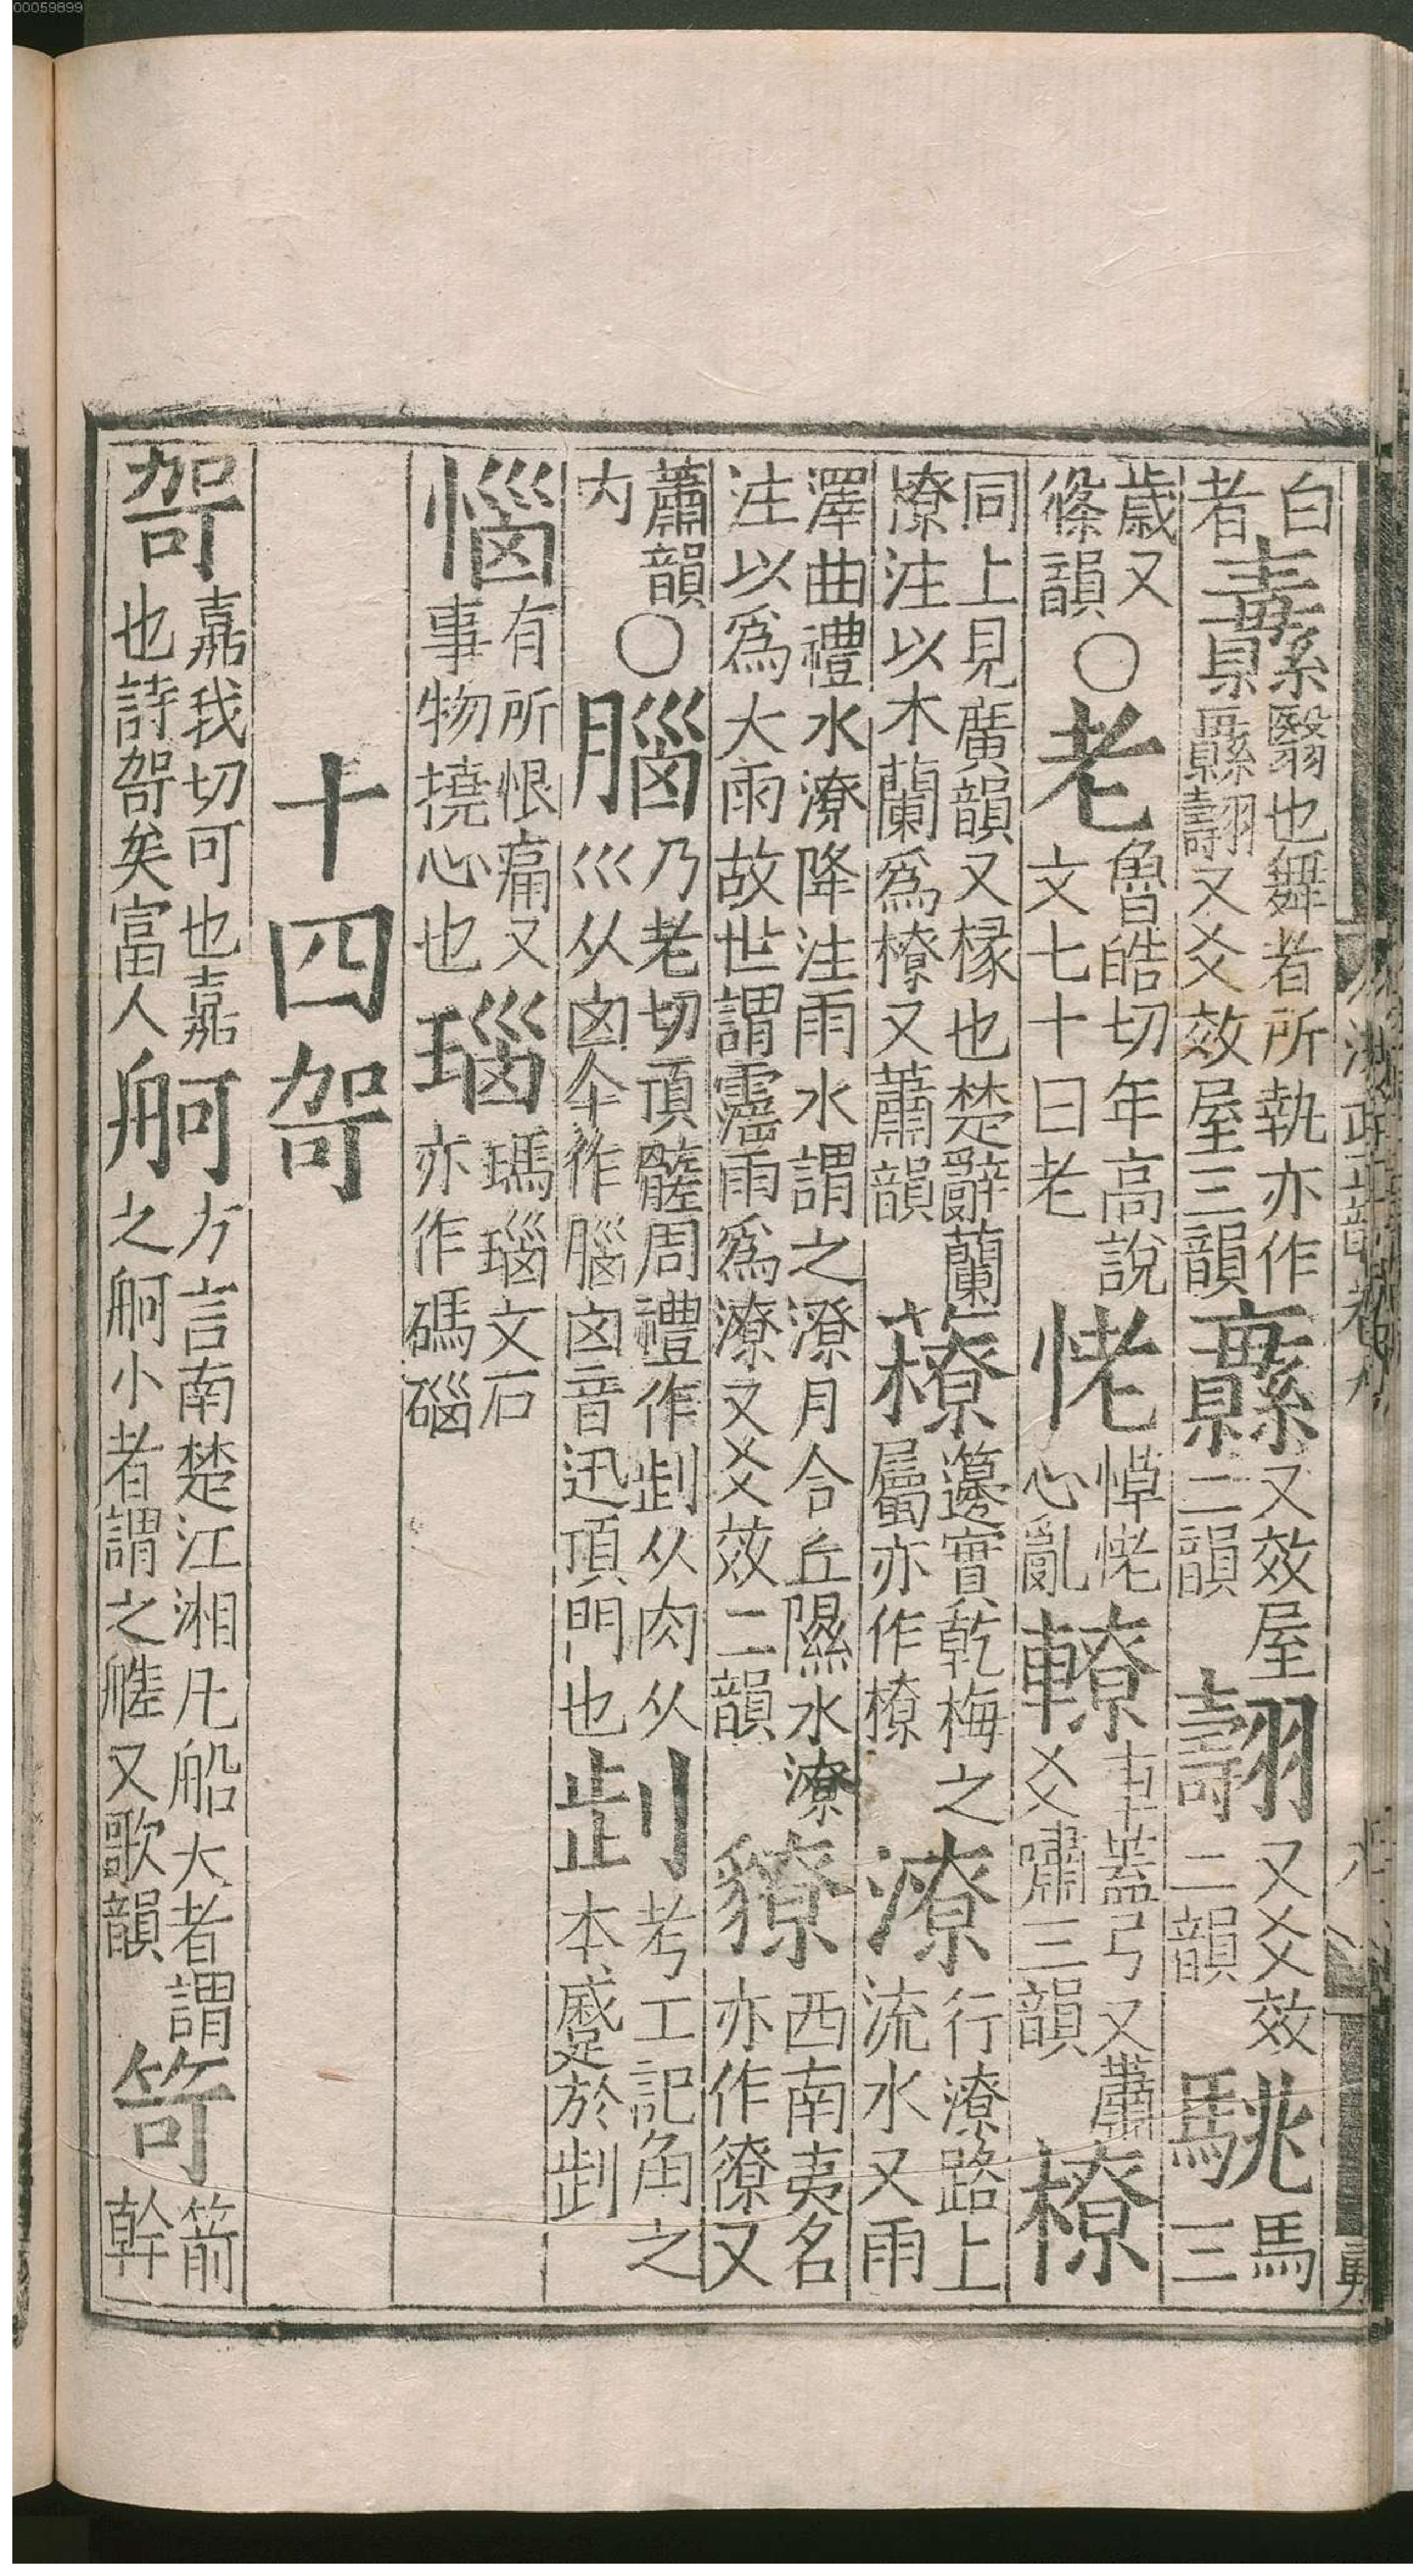 00059899
白者纛翳也舞者所執亦作纛翿又爻效屋三韻纛又效屋二韻翿又爻效二韻駣馬三
歲又篠韻〇老魯皓切年高說文七十曰老恅愺恅心亂轑車蓋弓又蕭爻嘯三韻橑
同上見廣韻又椽也楚辭蘭橑注以木蘭爲橑又蕭韻䕩籩實乾梅之屬亦作橑潦行潦路上流水又雨
澤曲禮水潦降注雨水謂之潦月令丘隰水潦注以爲大雨故世謂霪雨爲潦又爻效二韻獠西南夷名亦作獠又
蕭韻〇腦乃老切頂髓周禮作𠜶从肉从巛从囟今作腦囟音迅頂門也𠜶考工記角之本蹙於𠜶
惱有所恨痛又事物撓心也瑙瑪瑙文石亦作碼碯
十四哿
哿嘉我切可也嘉也詩哿矣富人舸方言南楚江湘凡船大者謂之舸小者謂之艖又歌韻笴箭幹